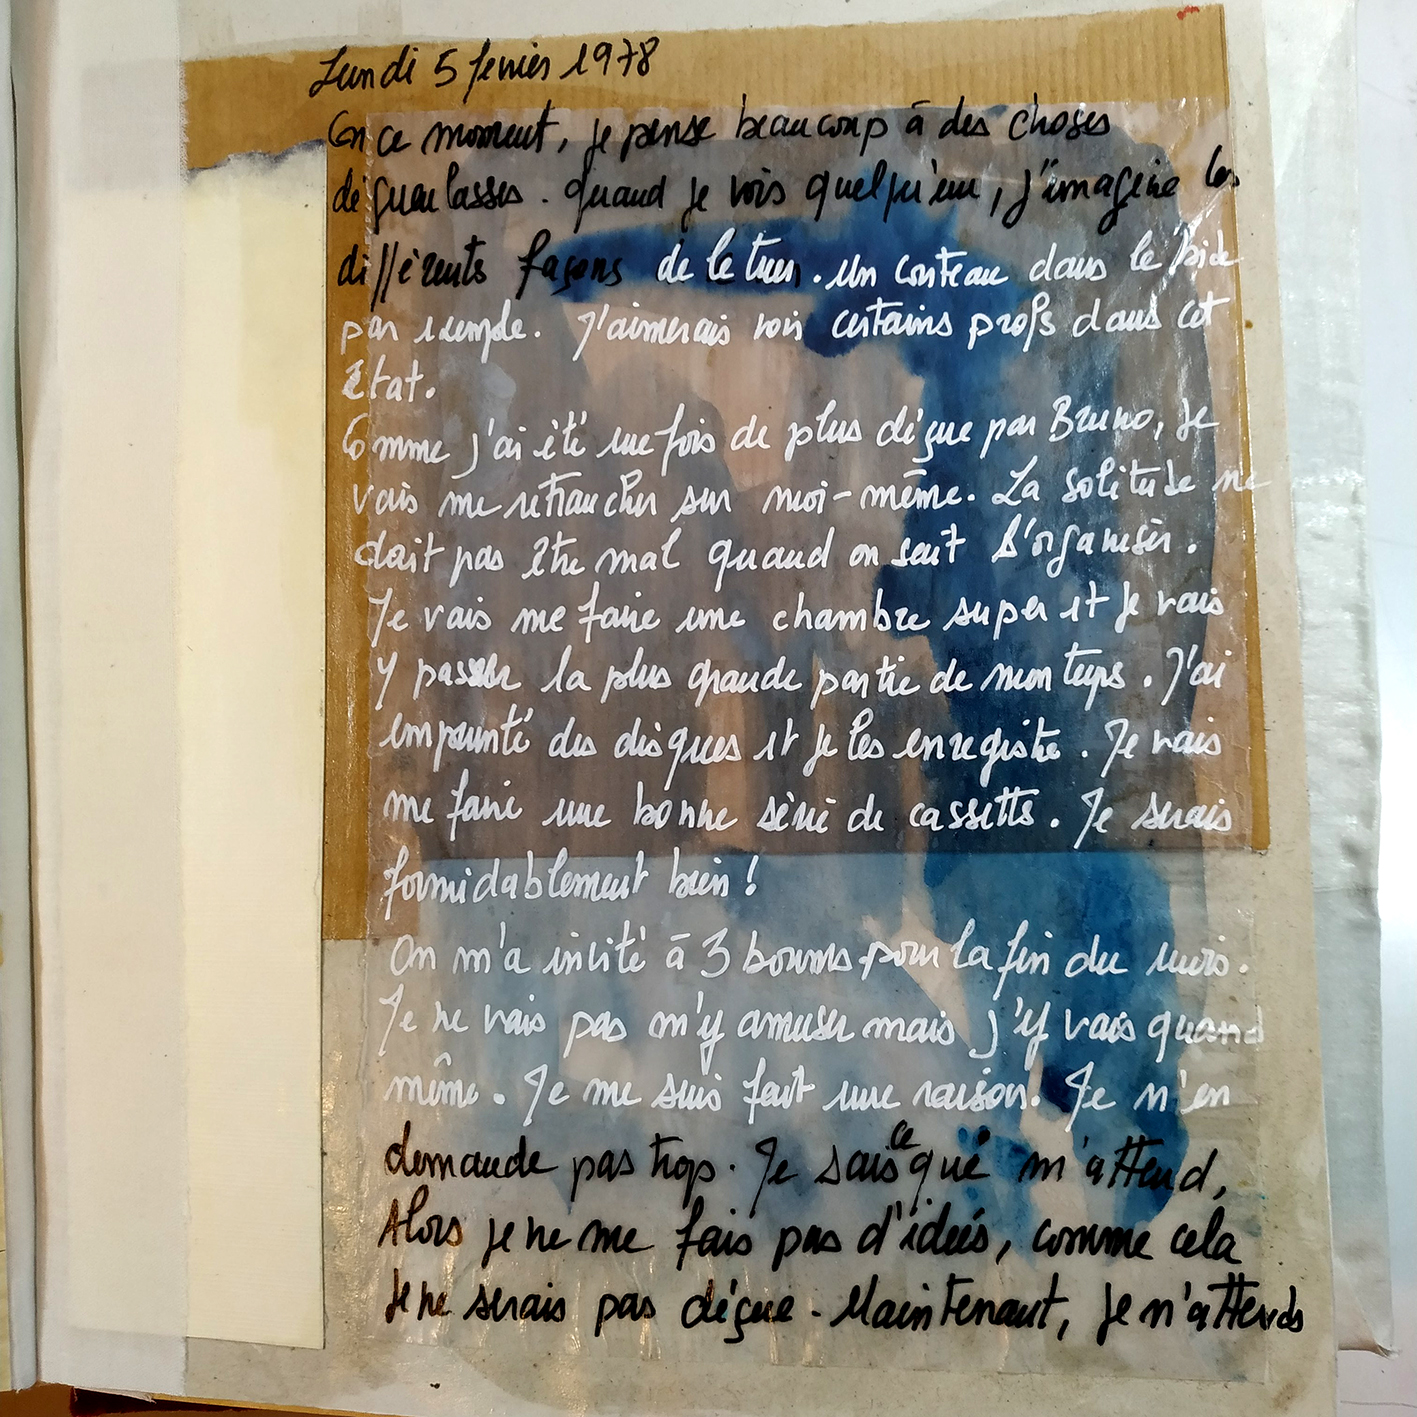 Lundi 5 fevrier 1978
En ce moment, je pense beaucoup à des choses
dégueulasses. Quand je vois quelqu'un, j'imagine les
différents façons de le tuer. Un couteau dans le bide
par exemple. J'aimerais voir certains profs dans cet
état.
Comme j'ai été une fois de plus déçue par Bruno, je
vais me retrancher sur moi-même. La solitude ne
doit pas être mal quand on sait s'organiser.
Je vais me faire une chambre super et je vais
y passer la plus grande partie de mon temps. J'ai
emprunté des disques et je les enregistre. Je vais
me faire une bonne série de cassettes. Je serais
formidablement bien !
On m'a invité à 3 boums pour la fin du mois.
Je ne vais pas m'y amuser mais j'y vais quand
même. Je me suis fait une raison. Je n'en
demande pas trop. Je sais ce qui m'attend,
Alors je ne me fais pas d'idées, comme cela
je ne serais pas déçue. Maintenant, je n'attends